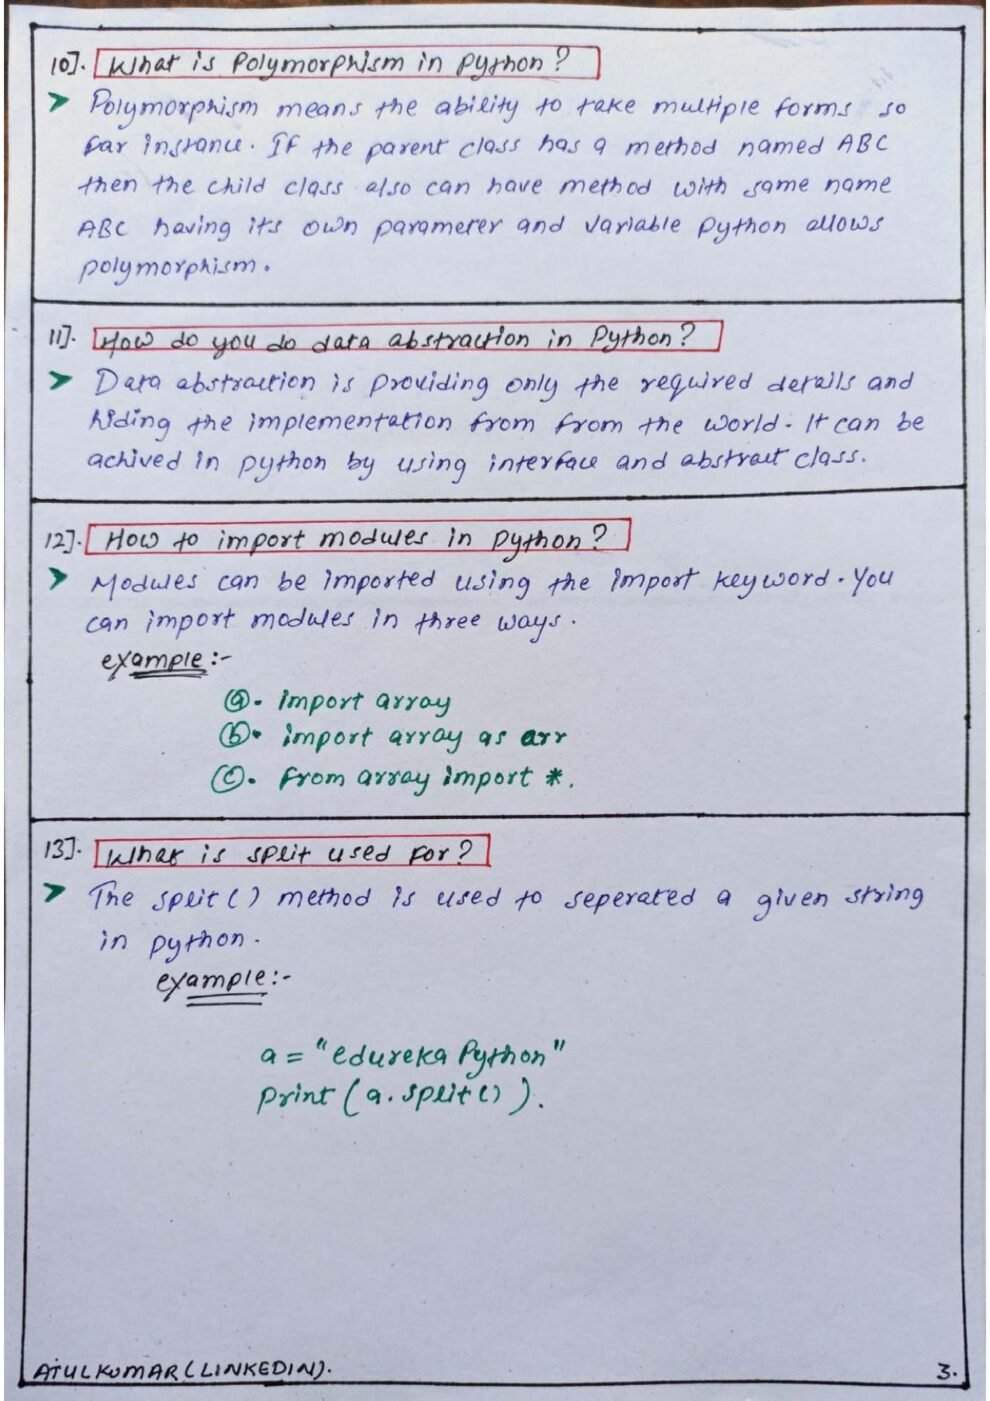 10]. What is Polymorphism in Python?
➤ Polymorphism means the ability to take multiple forms so
far instance. If the parent class has a method named ABC
then the child class also can have method with same name
ABC having its own parameter and variable Python allows
polymorphism.
11]. How do you do data abstraction in Python?
➤ Data abstraction is providing only the required details and
hiding the implementation from from the world. It can be
achived in python by using interface and abstract class.
12]. How to import modules in python?
➤ Modules can be imported using the import keyword. You
can import modules in three ways.
example:-
ⓐ. import array
ⓑ. import array as arr
ⓒ. from array import *.
13]. What is split used for?
➤ The split() method is used to seperated a given string
in python.
example:-
a = "edureka Python"
print(a.split()).
ATULKUMAR(LINKEDIN).
3.